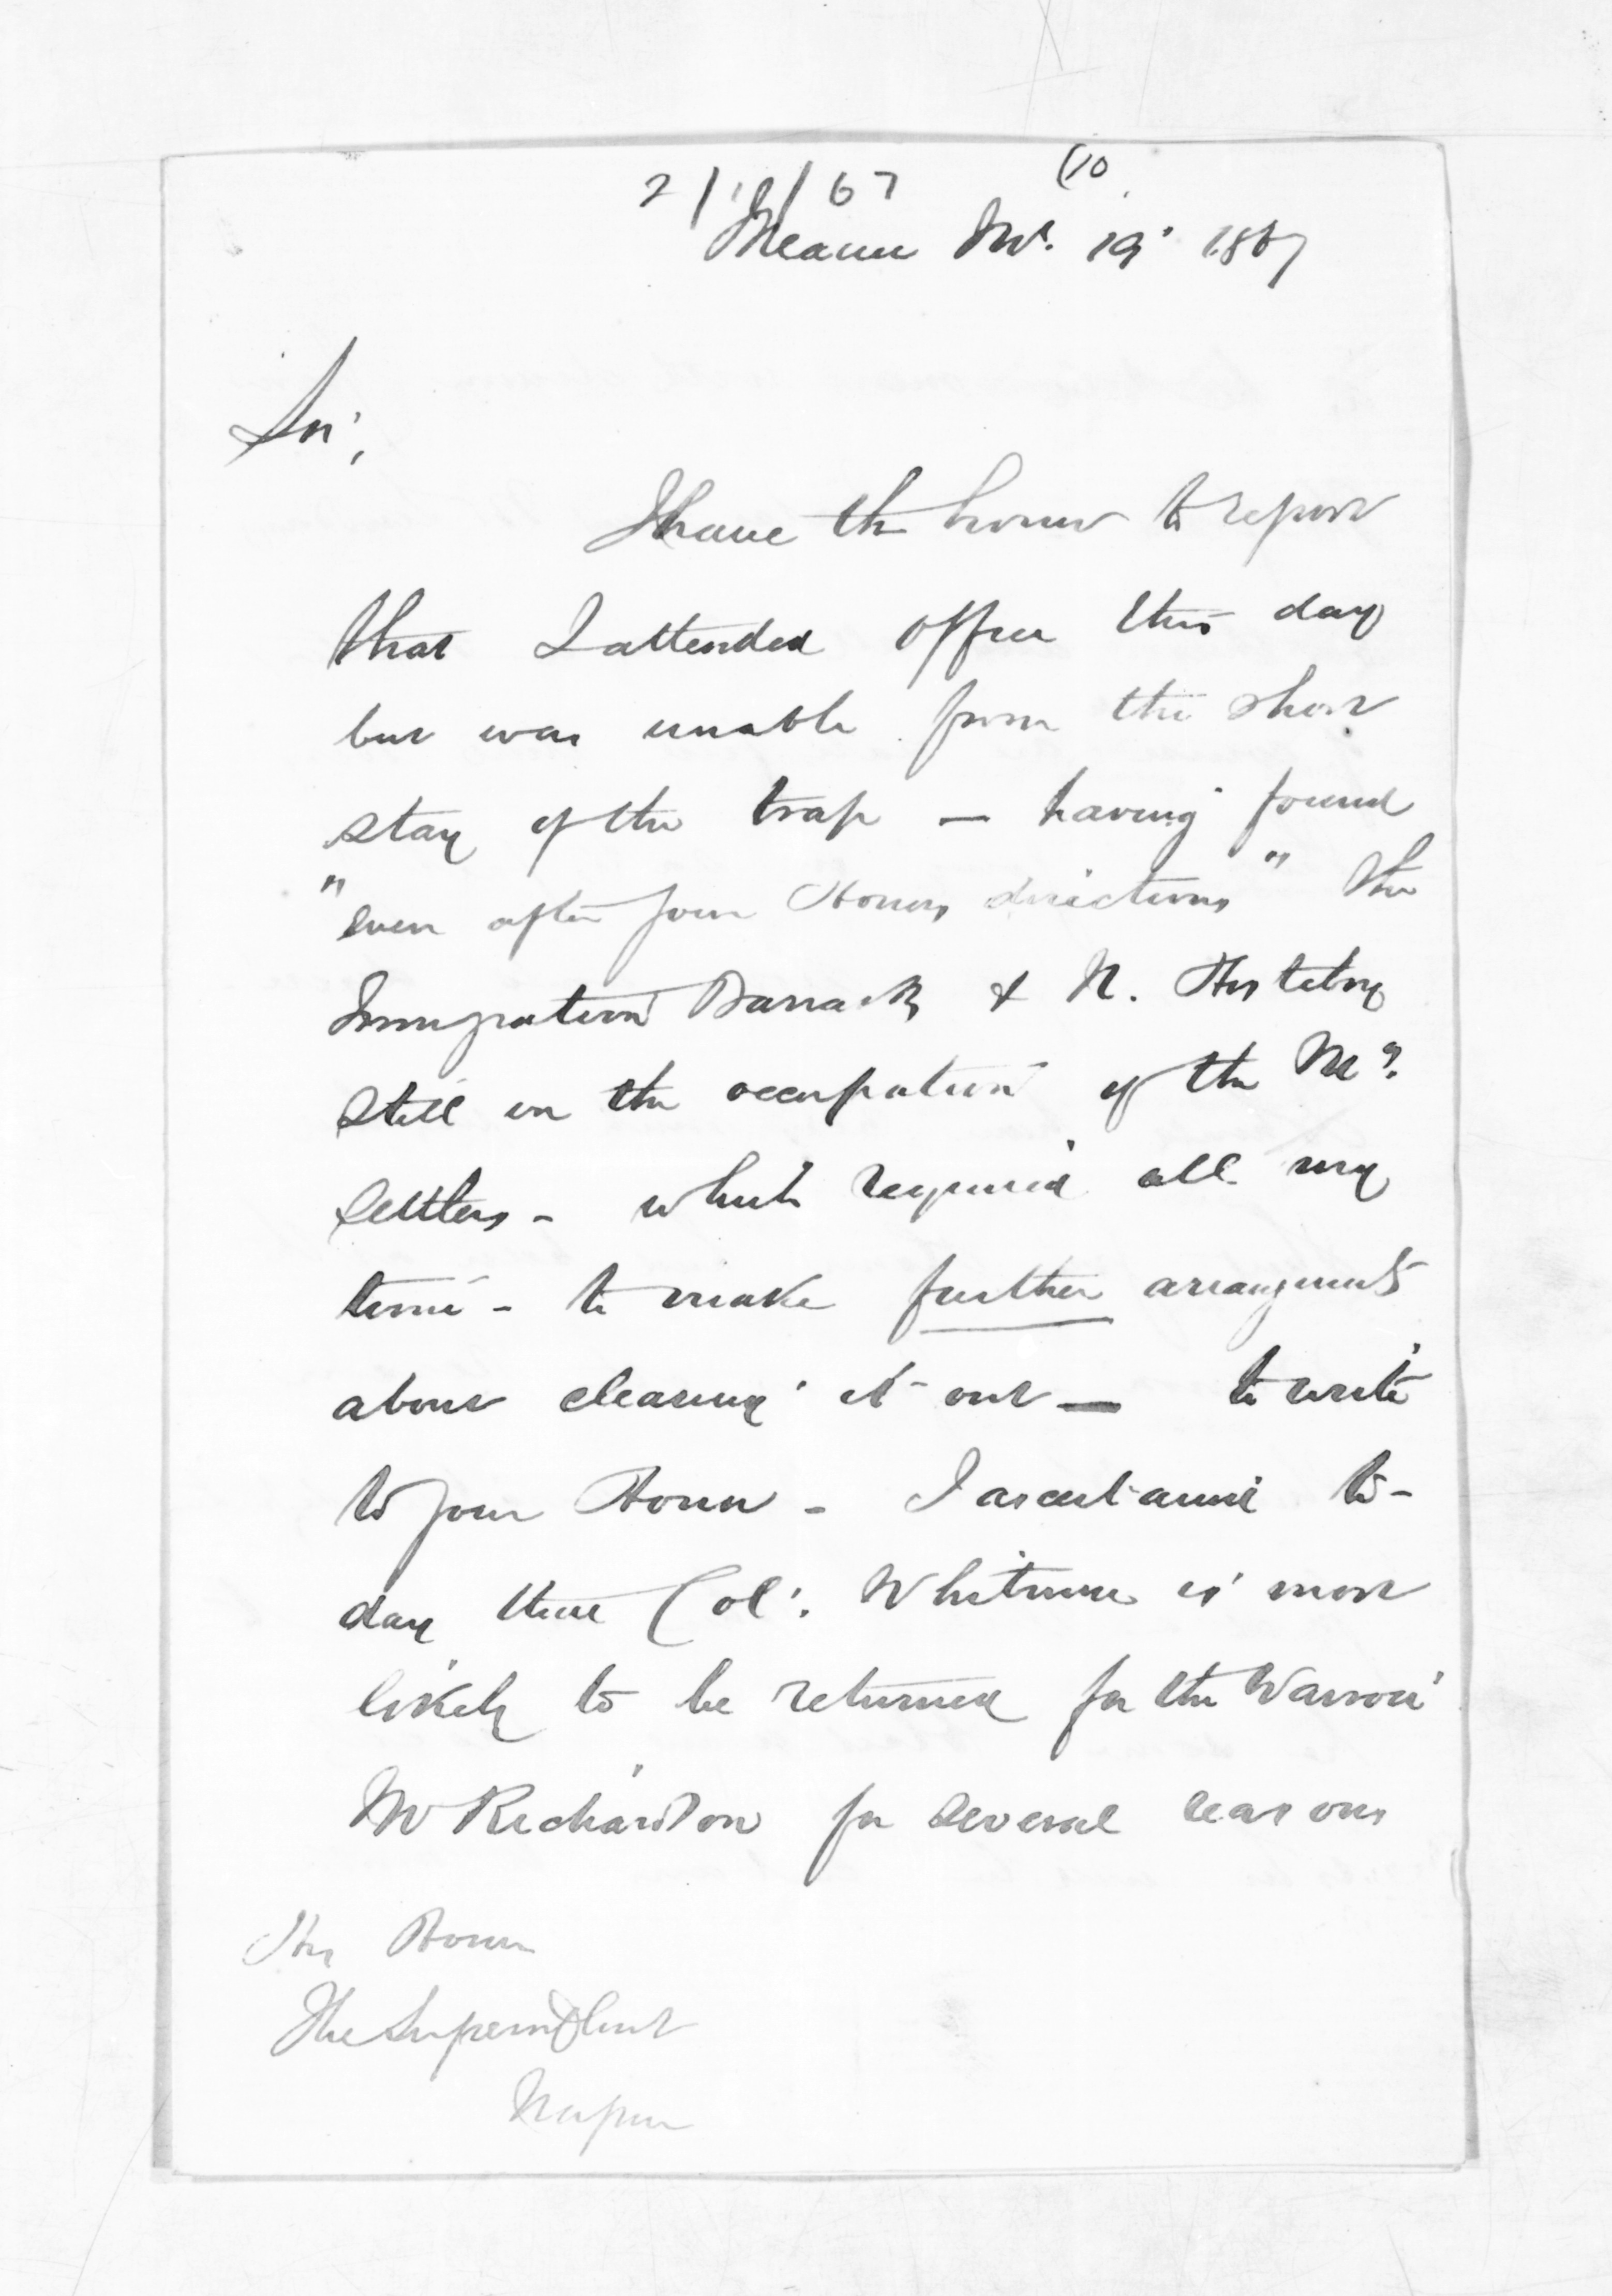 2/12/67
(10
Meanee Nov. 19. 1867
Sir,
I have the honor to report
that I attended office this day
but was unable from the short
stay of the trap — having found
"even after your Honors directions" the
Immigration Barracks & N. Hostelry
still in the occupation of the Me?.
Settlers - which required all my
time - to make further arrangements
about clearing it out — to write
to your Honor - I ascertained to-
day that Col. Whitmore is most
likely to be returned for the Wairoa
Mr Richardson for several reasons
His Honor
The Superintdent
Napier